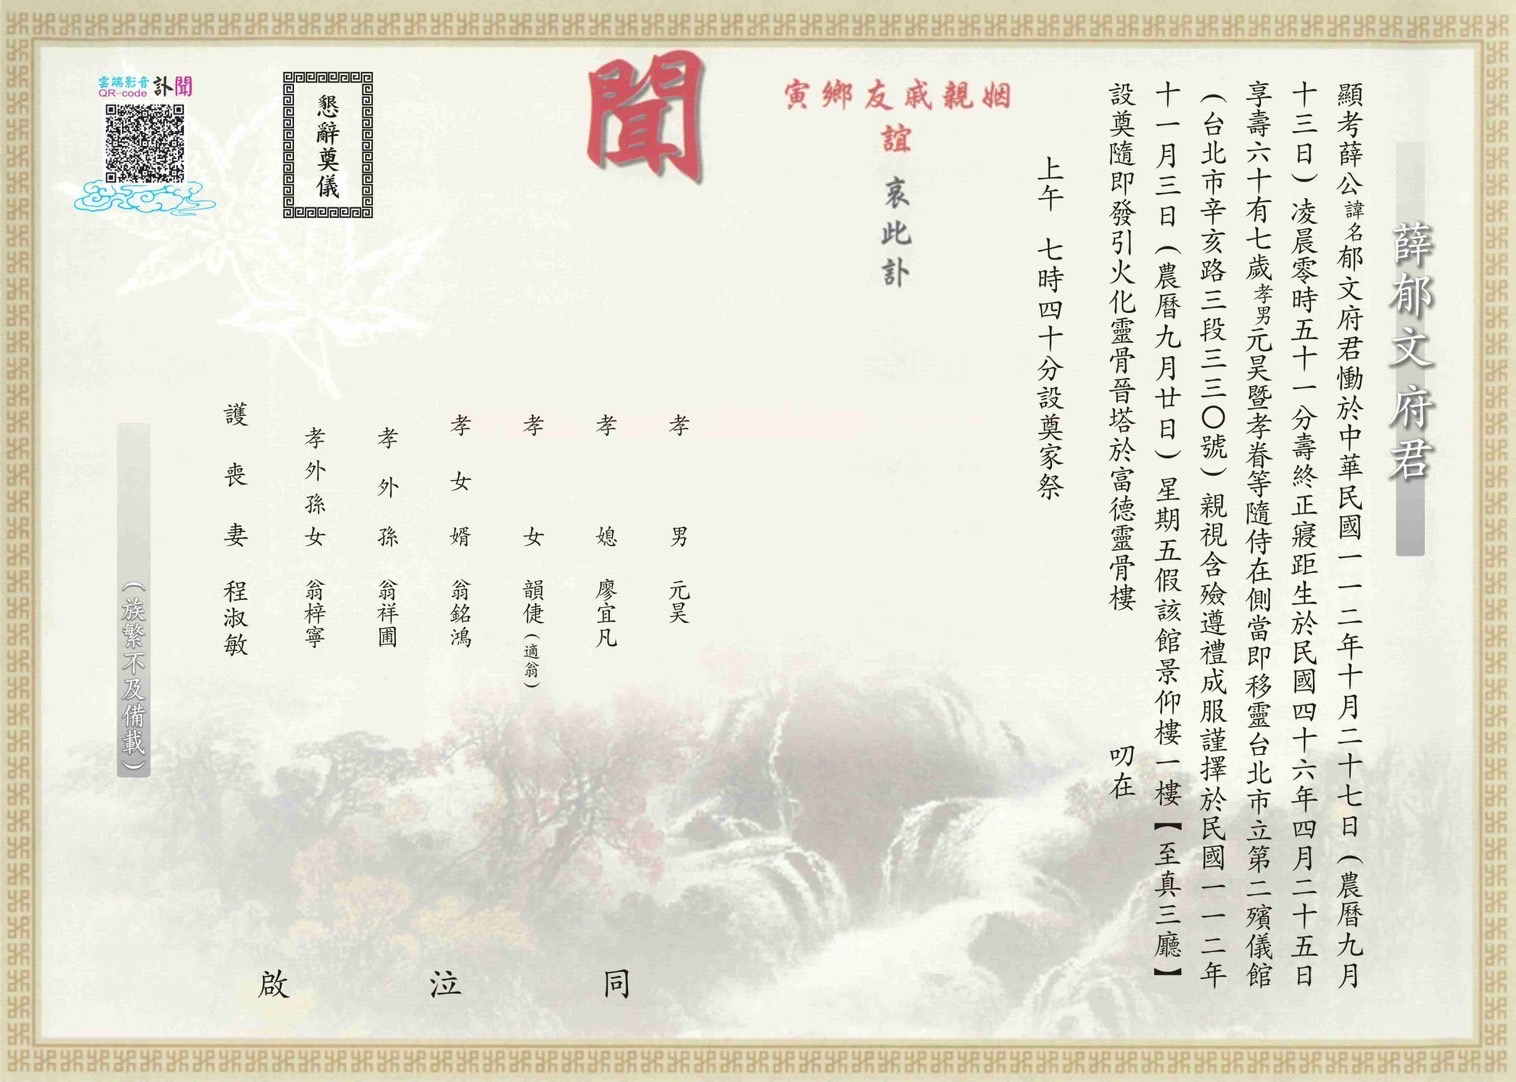 薛郁文府君
顯考薛公諱名郁文府君慟於中華民國一一二年十月二十七日(農曆九月
十三日)凌晨零時五十一分壽終正寢距生於民國四十六年四月二十五日
享壽六十有七歲孝男元昊暨孝眷等隨侍在側當即移靈台北市立第二殯儀館
(台北市辛亥路三段三三〇號)親視含殮遵禮成服謹擇於民國一一二年
十一月三日(農曆九月廿日)星期五假該館景仰樓一樓【至真三廳】
設奠隨即發引火化靈骨晉塔於富德靈骨樓 叨在
上午 七時四十分設奠家祭
姻親戚友鄉寅
誼
哀此訃
聞
孝男 元昊
孝媳 廖宜凡
孝女 韻倢(適翁)
孝女婿 翁銘鴻
孝外孫 翁祥圃
孝外孫女 翁梓寧
護喪妻 程淑敏
同泣啟
(族繁不及備載)
懇辭奠儀
雲端影音
QR-code
訃聞